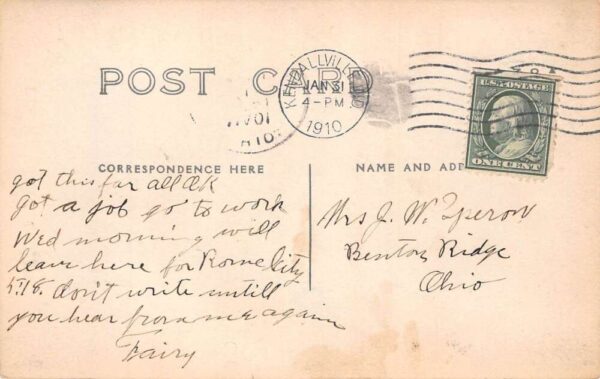 POST CARD
KENDALLVILLE, IND.
JAN 31
4-PM
1910
U.S. POSTAGE
ONE CENT
CORRESPONDENCE HERE
NAME AND ADD
got this far all OK
got a job go to work
Wed morning will
leave here for Rome City
don't write untill
you hear from me again
Fairy
Mrs J. W.
Benton Ridge
Ohio